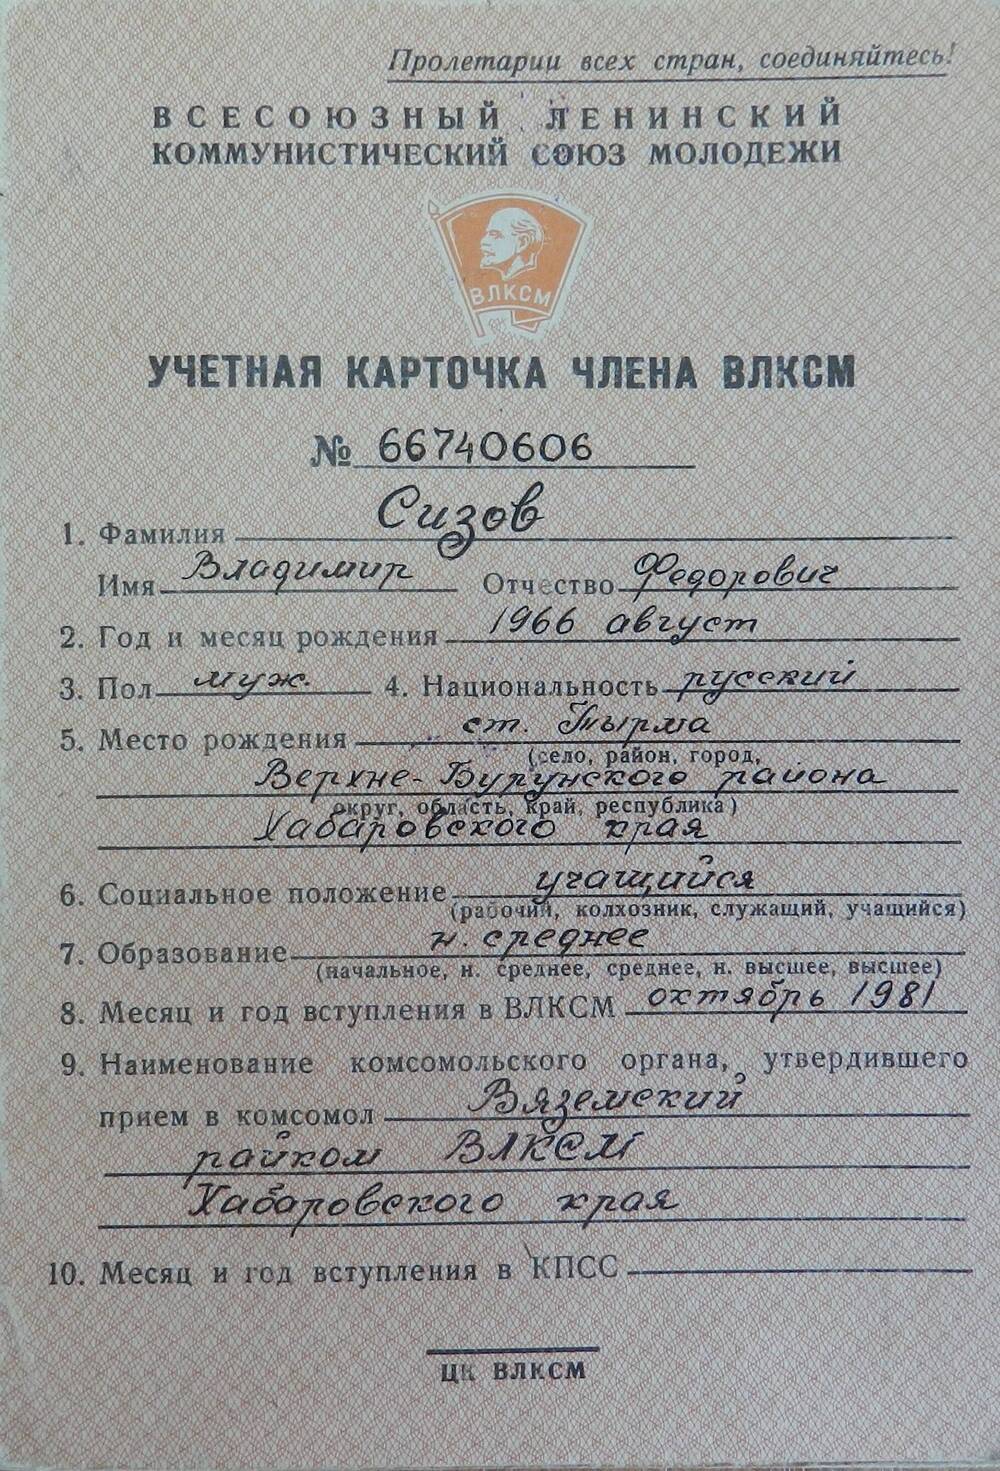 Пролетарии всех стран, соединяйтесь!
ВСЕСОЮЗНЫЙ ЛЕНИНСКИЙ
КОММУНИСТИЧЕСКИЙ СОЮЗ МОЛОДЕЖИ
ВЛКСМ
УЧЕТНАЯ КАРТОЧКА ЧЛЕНА ВЛКСМ
№ 66740606
1. Фамилия Сизов
Имя Владимир Отчество Федорович
2. Год и месяц рождения 1966 август
3. Пол муж. 4. Национальность русский
5. Место рождения ст. Тырма
(село, район, город,
Верхне-Бурунского района
округ, область, край, республика)
Хабаровского края
6. Социальное положение учащийся
(рабочий, колхозник, служащий, учащийся)
7. Образование н. среднее
(начальное, н. среднее, среднее, н. высшее, высшее)
8. Месяц и год вступления в ВЛКСМ октябрь 1981
9. Наименование комсомольского органа, утвердившего
прием в комсомол Вяземский
райком ВЛКСМ
Хабаровского края
10. Месяц и год вступления в КПСС
ЦК ВЛКСМ